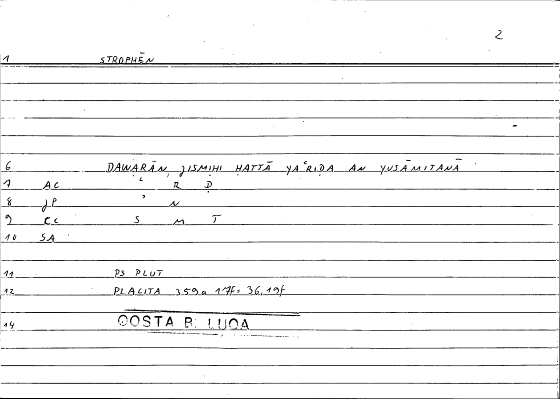 2
1 STROPHĒN
6 DAWARĀN ǦISMIHI ḤATTĀ YAʿRIDA AN YUSĀMITANĀ
7 AC ʿ R Ḍ
8 JP ʾ N
9 CC S M T
10 SA
11 PS PLUT
12 PLACITA 359a 17f= 36,19f
14 COSTA B. LUCA